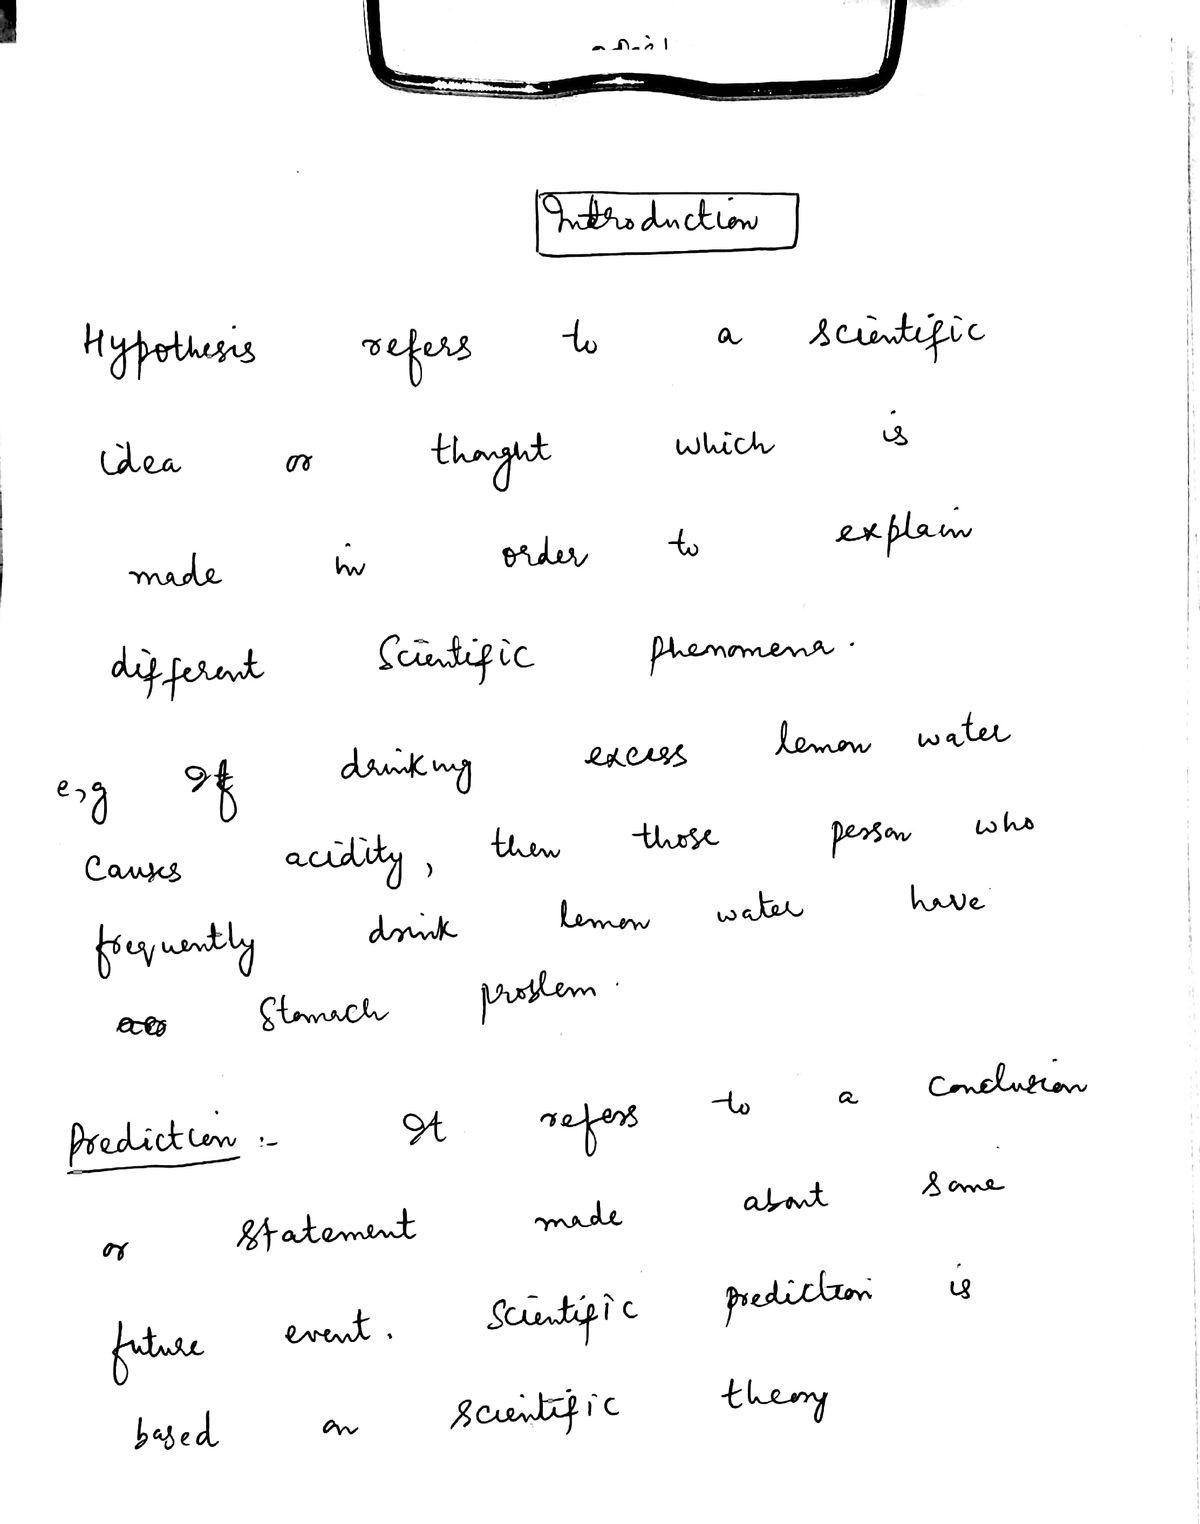 Introduction
Hypothesis refers to a scientific
idea or thought which is
made in order to explain
different Scientific phenomena.
e,g If drinking excess lemon water
Causes acidity, then those person who
frequently drink lemon water have
Stomach problem.
Prediction :- It refers to a conclusion
or statement made about some
future event. Scientific prediction is
based on scientific theory